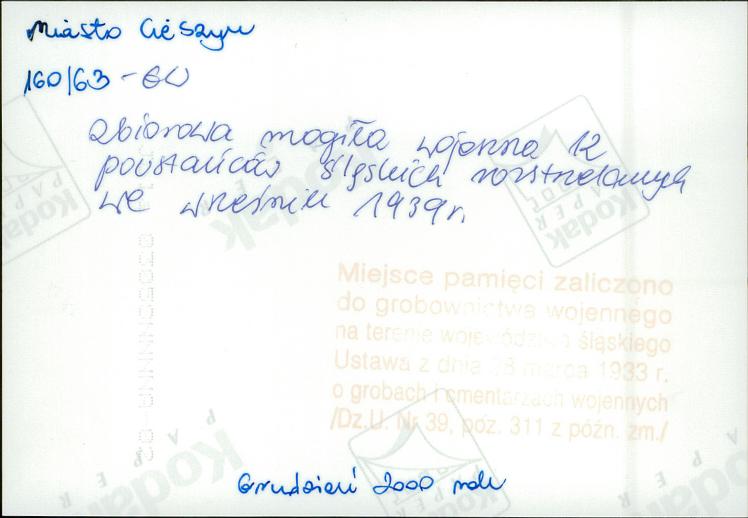 Miasto Cieszyn
160/63 - GW
Zbiorowa mogiła wojenna 12
powstańców śląskich rozstrzelanych
we wrześniu 1939 r.
Miejsce pamięci zaliczono
do grobownictwa wojennego
na terenie województwa śląskiego
Ustawa z dnia 28 marca 1933 r.
o grobach i cmentarzach wojennych
/Dz.U. Nr 39, poz. 311 z późn. zm./
Grudzień 2000 roku